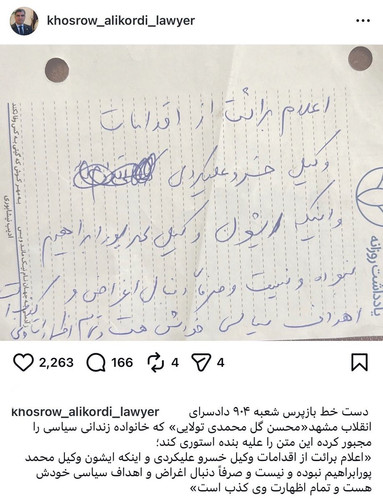 khosrow_alikordi_lawyer
اعلام برائت از اقدامات
وکیل خسرو علیکردی
و اینکه ایشون وکیل محمد پورابراهیم
نبوده و نیست و صرفاً دنبال اغراض و
اهداف سیاسی خودش هست و تمام اظهارات وی
یادداشت روزانه
2,263
166
4
4
khosrow_alikordi_lawyer دست خط بازپرس شعبه ۹۰۴ دادسرای
انقلاب مشهد«محسن گل محمدی تولایی» که خانواده زندانی سیاسی را
مجبور کرده این متن را علیه بنده استوری کند؛
«اعلام برائت از اقدامات وکیل خسرو علیکردی و اینکه ایشون وکیل محمد
پورابراهیم نبوده و نیست و صرفاً دنبال اغراض و اهداف سیاسی خودش
هست و تمام اظهارت وی کذب است»